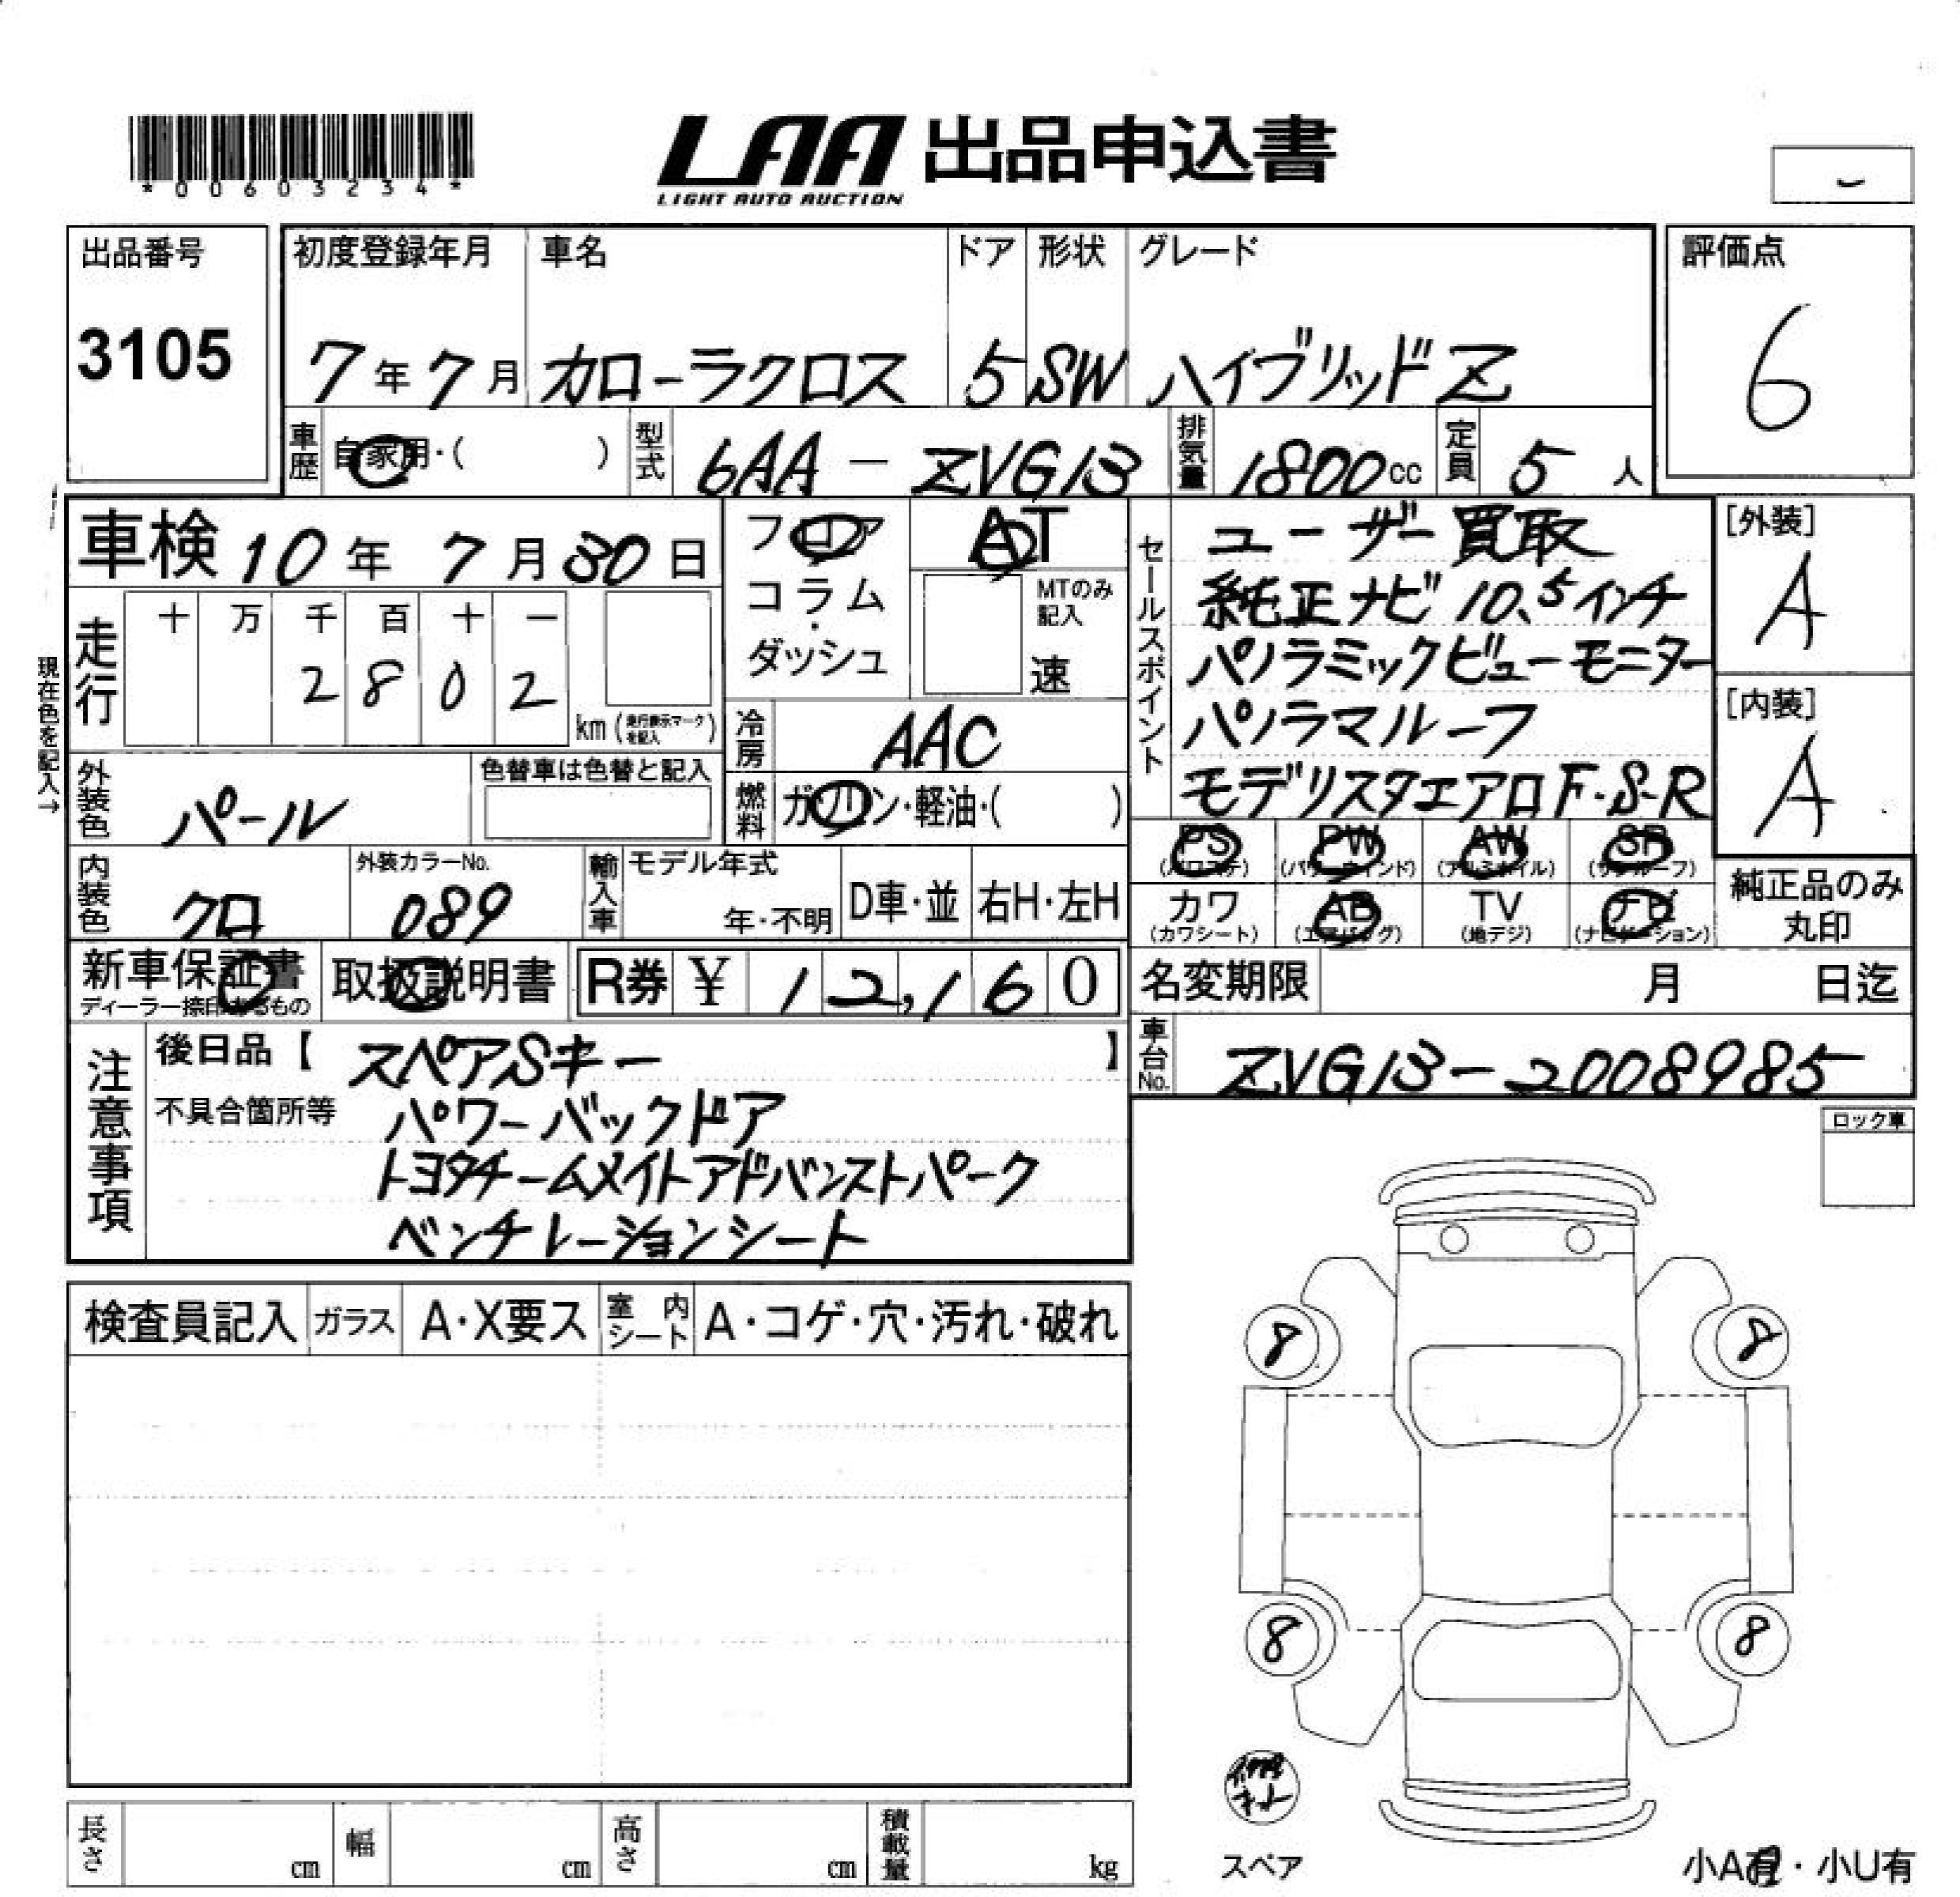 *00603234*
LAA 出品申込書
LIGHT AUTO AUCTION
出品番号
3105
初度登録年月 車名 ドア 形状 グレード
7年7月 カローラクロス 5 SW ハイブリッドZ
評価点
6
車歴 自家用・( ) 型式 6AA - ZVG13 排気量 1800cc 定員 5人
車検 10年 7月 30日
フロア
コラム
・
ダッシュ
AT
MTのみ
記入
速
セールスポイント
ユーザー買取
純正ナビ 10.5インチ
パノラミックビューモニター
パノラマルーフ
モデリスタエアロF・S・R
[外装]
A
[内装]
A
現在色を記入→
走行 十 万 千 百 十 一
2 8 0 2
km (走行表示マークを記入)
冷房 AAC
燃料 ガソリン・軽油・( )
外装色 パール
色替車は色替と記入
内装色 クロ
外装カラーNo.
089
輸入車 モデル年式
年・不明 D車・並 右H・左H
PS PW AW SR
(パワステ) (パワーウィンド) (アルミホイル) (サンルーフ)
カワ AB TV ナビ
(カワシート) (エアバッグ) (地デジ) (ナビゲーション)
純正品のみ
丸印
新車保証書
ディーラー捺印あるもの
取扱説明書
R券 ¥ 12,160
名変期限 月 日迄
車台No. ZVG13-2008985
注意事項
後日品【 スペアSキー 】
不具合箇所等 パワーバックドア
トヨタチームメイトアドバンストパーク
ベンチレーションシート
ロック車
検査員記入 ガラス A・X要ス 室内シート A・コゲ・穴・汚れ・破れ
8 8
8 8
スペア
長さ cm 幅 cm 高さ cm 積載量 kg
小A有・小U有